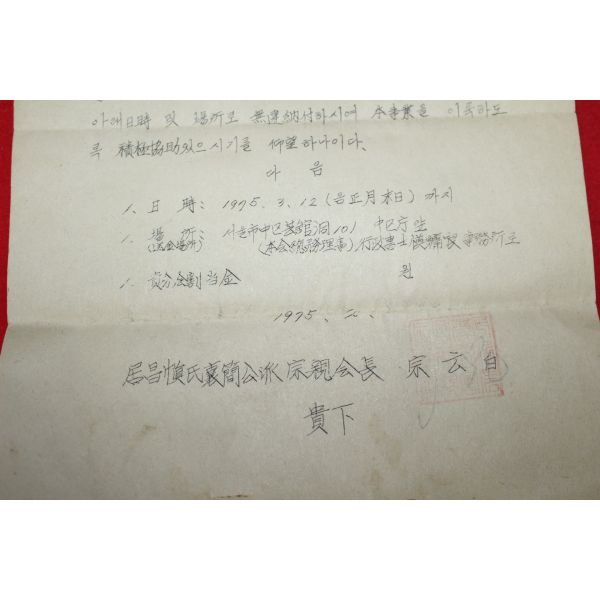 아래日時 및 場所로 無違納付하시여 本事業을 이룩하도
록 積極協助있으시기를 仰望하나이다.
다음
1. 日時: 1975. 3. 12 (음正月末日) 까지
1. 場所: 서울市中区 洞 101 中区庁앞
(送金場所) (本会総務理事) 行政書士 慎 事務所로
1. 割当金 원
1975. 2.
居昌慎氏襄簡公派宗親会長 宗云
貴下